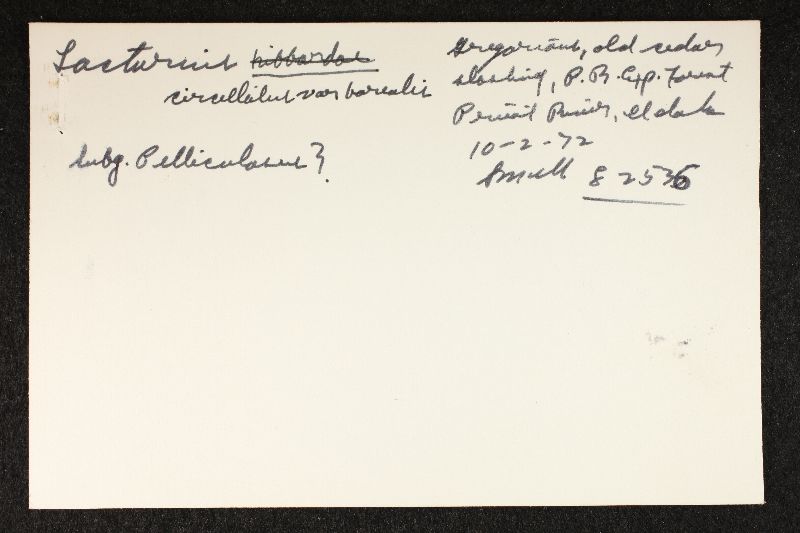 Lactarius hibbardae
circellatus var borealis
subg. Pelliculosus?
Gregarious, old cedar
slashing, P. R. Exp. Forest
Priest River, Idaho
10-2-72
Smith 82536